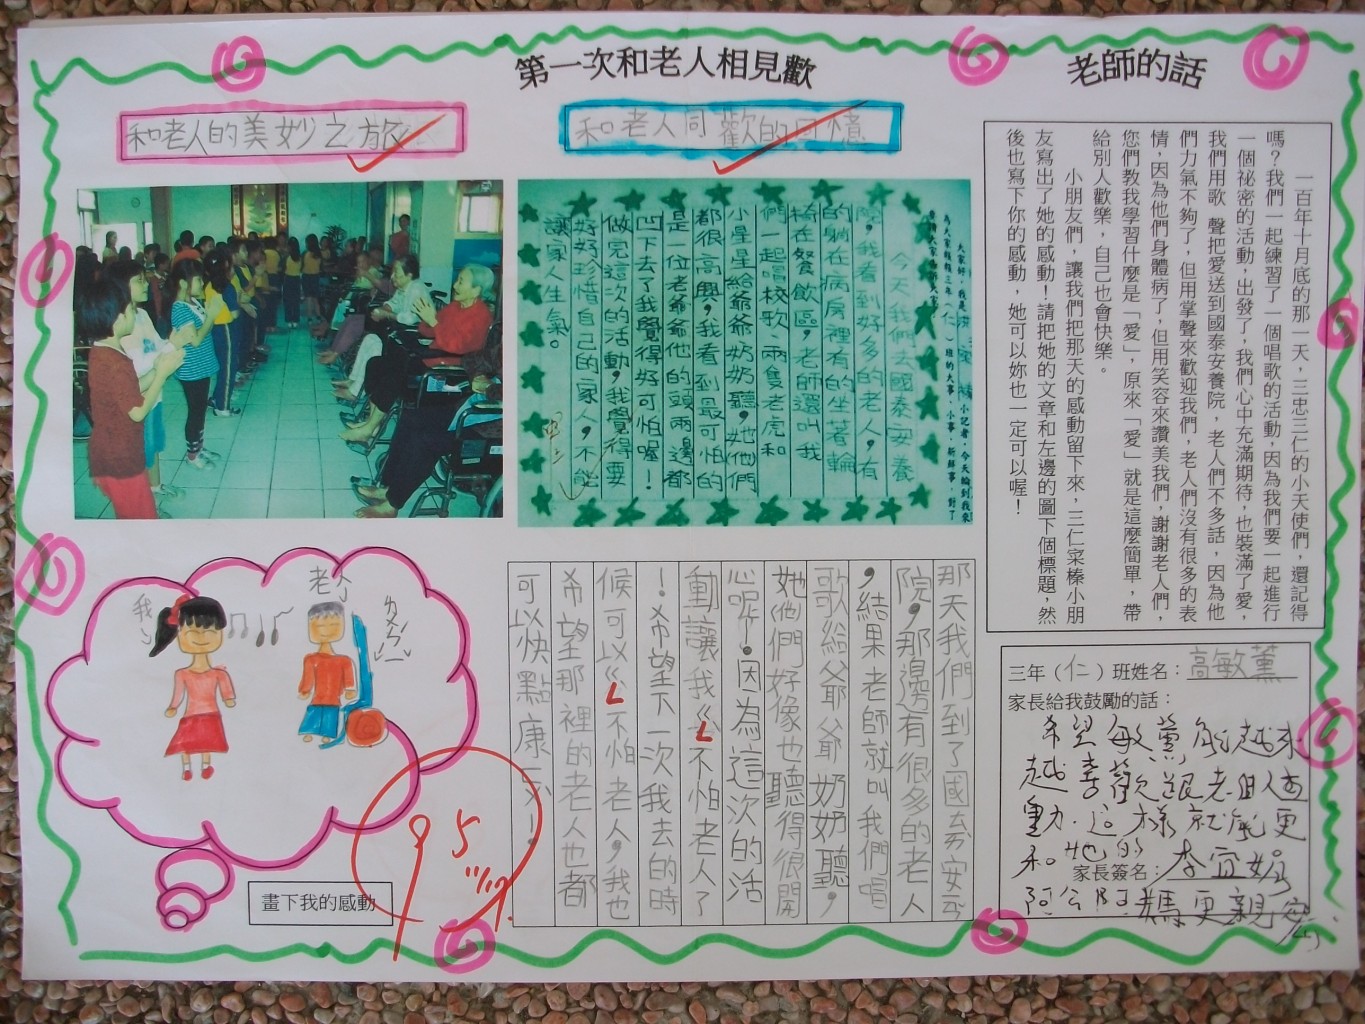 第一次和老人相見歡
老師的話
和老人的美妙之旅
和老人同歡的回憶
一百年十月底的那一天，三忠三仁的小天使們，還記得
嗎？我們一起練習了一個唱歌的活動，因為我們要一起進行
一個祕密的活動，出發了，我們心中充滿期待，也裝滿了愛，
我們用歌 聲把愛送到國泰安養院，老人們不多話，因為他
們力氣不夠了，但用掌聲來歡迎我們，老人們沒有很多的表
情，因為他們身體病了，但用笑容來讚美我們，謝謝老人們，
您們教我學習什麼是「愛」，原來「愛」就是這麼簡單，帶
給別人歡樂，自己也會快樂。
小朋友們，讓我們把那天的感動留下來，三仁寀榛小朋
友寫出了她的感動！請把她的文章和左邊的圖下個標題，然
後也寫下你的感動，她可以妳也一定可以喔！
今天我們去國泰安養
院，我看到好多的老人，有
的躺在病房裡有的坐著輪
椅在餐飲區，老師還叫我
們一起唱校歌、兩隻老虎和
小星星給爺爺奶奶聽，她們
都很高興，我看到最可怕的
是一位老爺爺他的頭兩邊都
凹下去了我覺得好可怕喔！
做完這次的活動，我覺得要
好好珍惜自己的家人，不能
讓家人生氣。
我
老人
畫下我的感動
95
11/17
那天我們到了國泰安ㄧㄤˇ
院，那邊有很多的老人
，結果老師就叫我們唱
歌給爺爺奶奶聽，
她們好像也聽得很開
心呢！因為這次的活
動讓我ㄍㄥˋ不怕老人了
！希望下一次我去的時
候可以ㄍㄥˋ不怕老人，我也
希望那裡的老人也都
可以快點康ㄈㄨˋ！
三年（仁）班姓名：高敏薰
家長給我鼓勵的話：
希望敏薰能越來
越喜歡跟老人互
動，這樣就能更
和她的
家長簽名：
阿公阿媽更親密